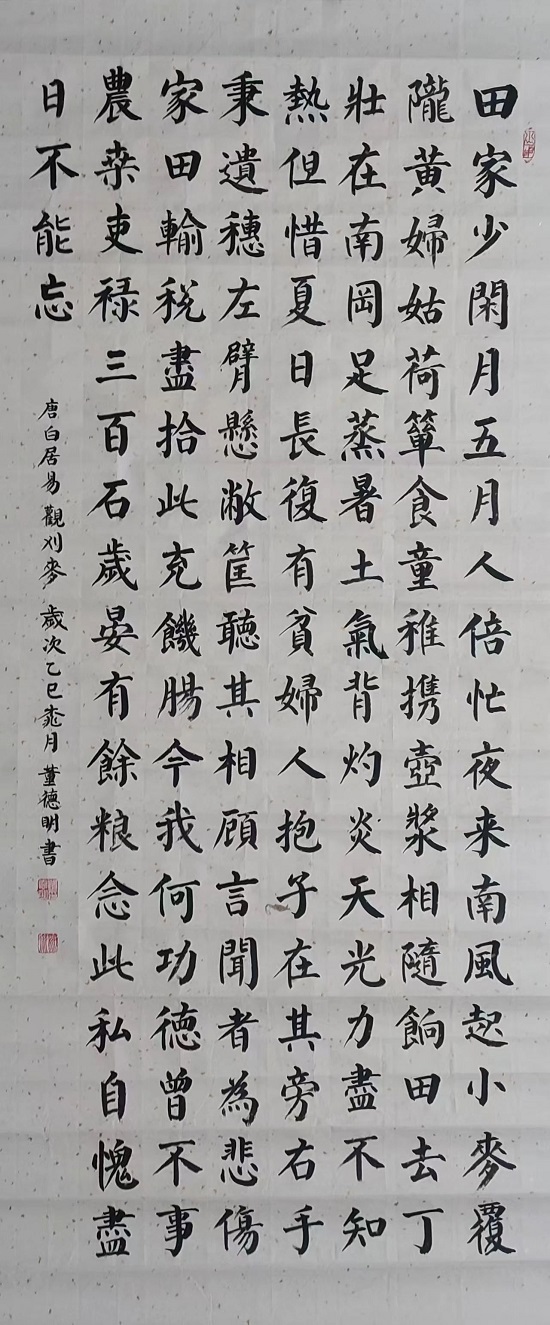 田家少閑月五月人倍忙夜来南風起小麥覆
隴黃婦姑荷簞食童稚携壺漿相隨餉田去丁
壯在南岡足蒸暑土氣背灼炎天光力盡不知
熱但惜夏日長復有貧婦人抱子在其旁右手
秉遺穗左臂懸敝筐聽其相顧言聞者為悲傷
家田輸税盡拾此充饑腸今我何功德曾不事
農桒吏禄三百石歲晏有餘粮念此私自愧盡
日不能忘
唐白居易觀刈麥 歲次乙巳桃月 董德明書